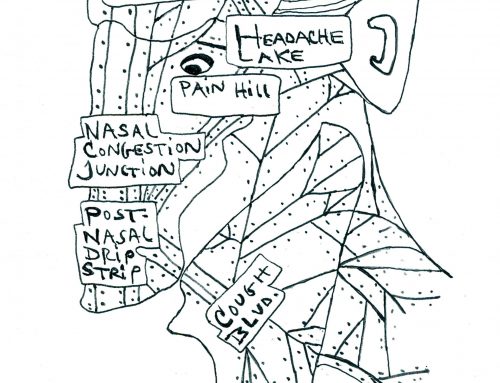 HEADACHE
LAKE
PAIN HILL
NASAL
CONGESTION
JUNCTION
POST-
NASAL
DRIP
STRIP
COUGH
BLVD.